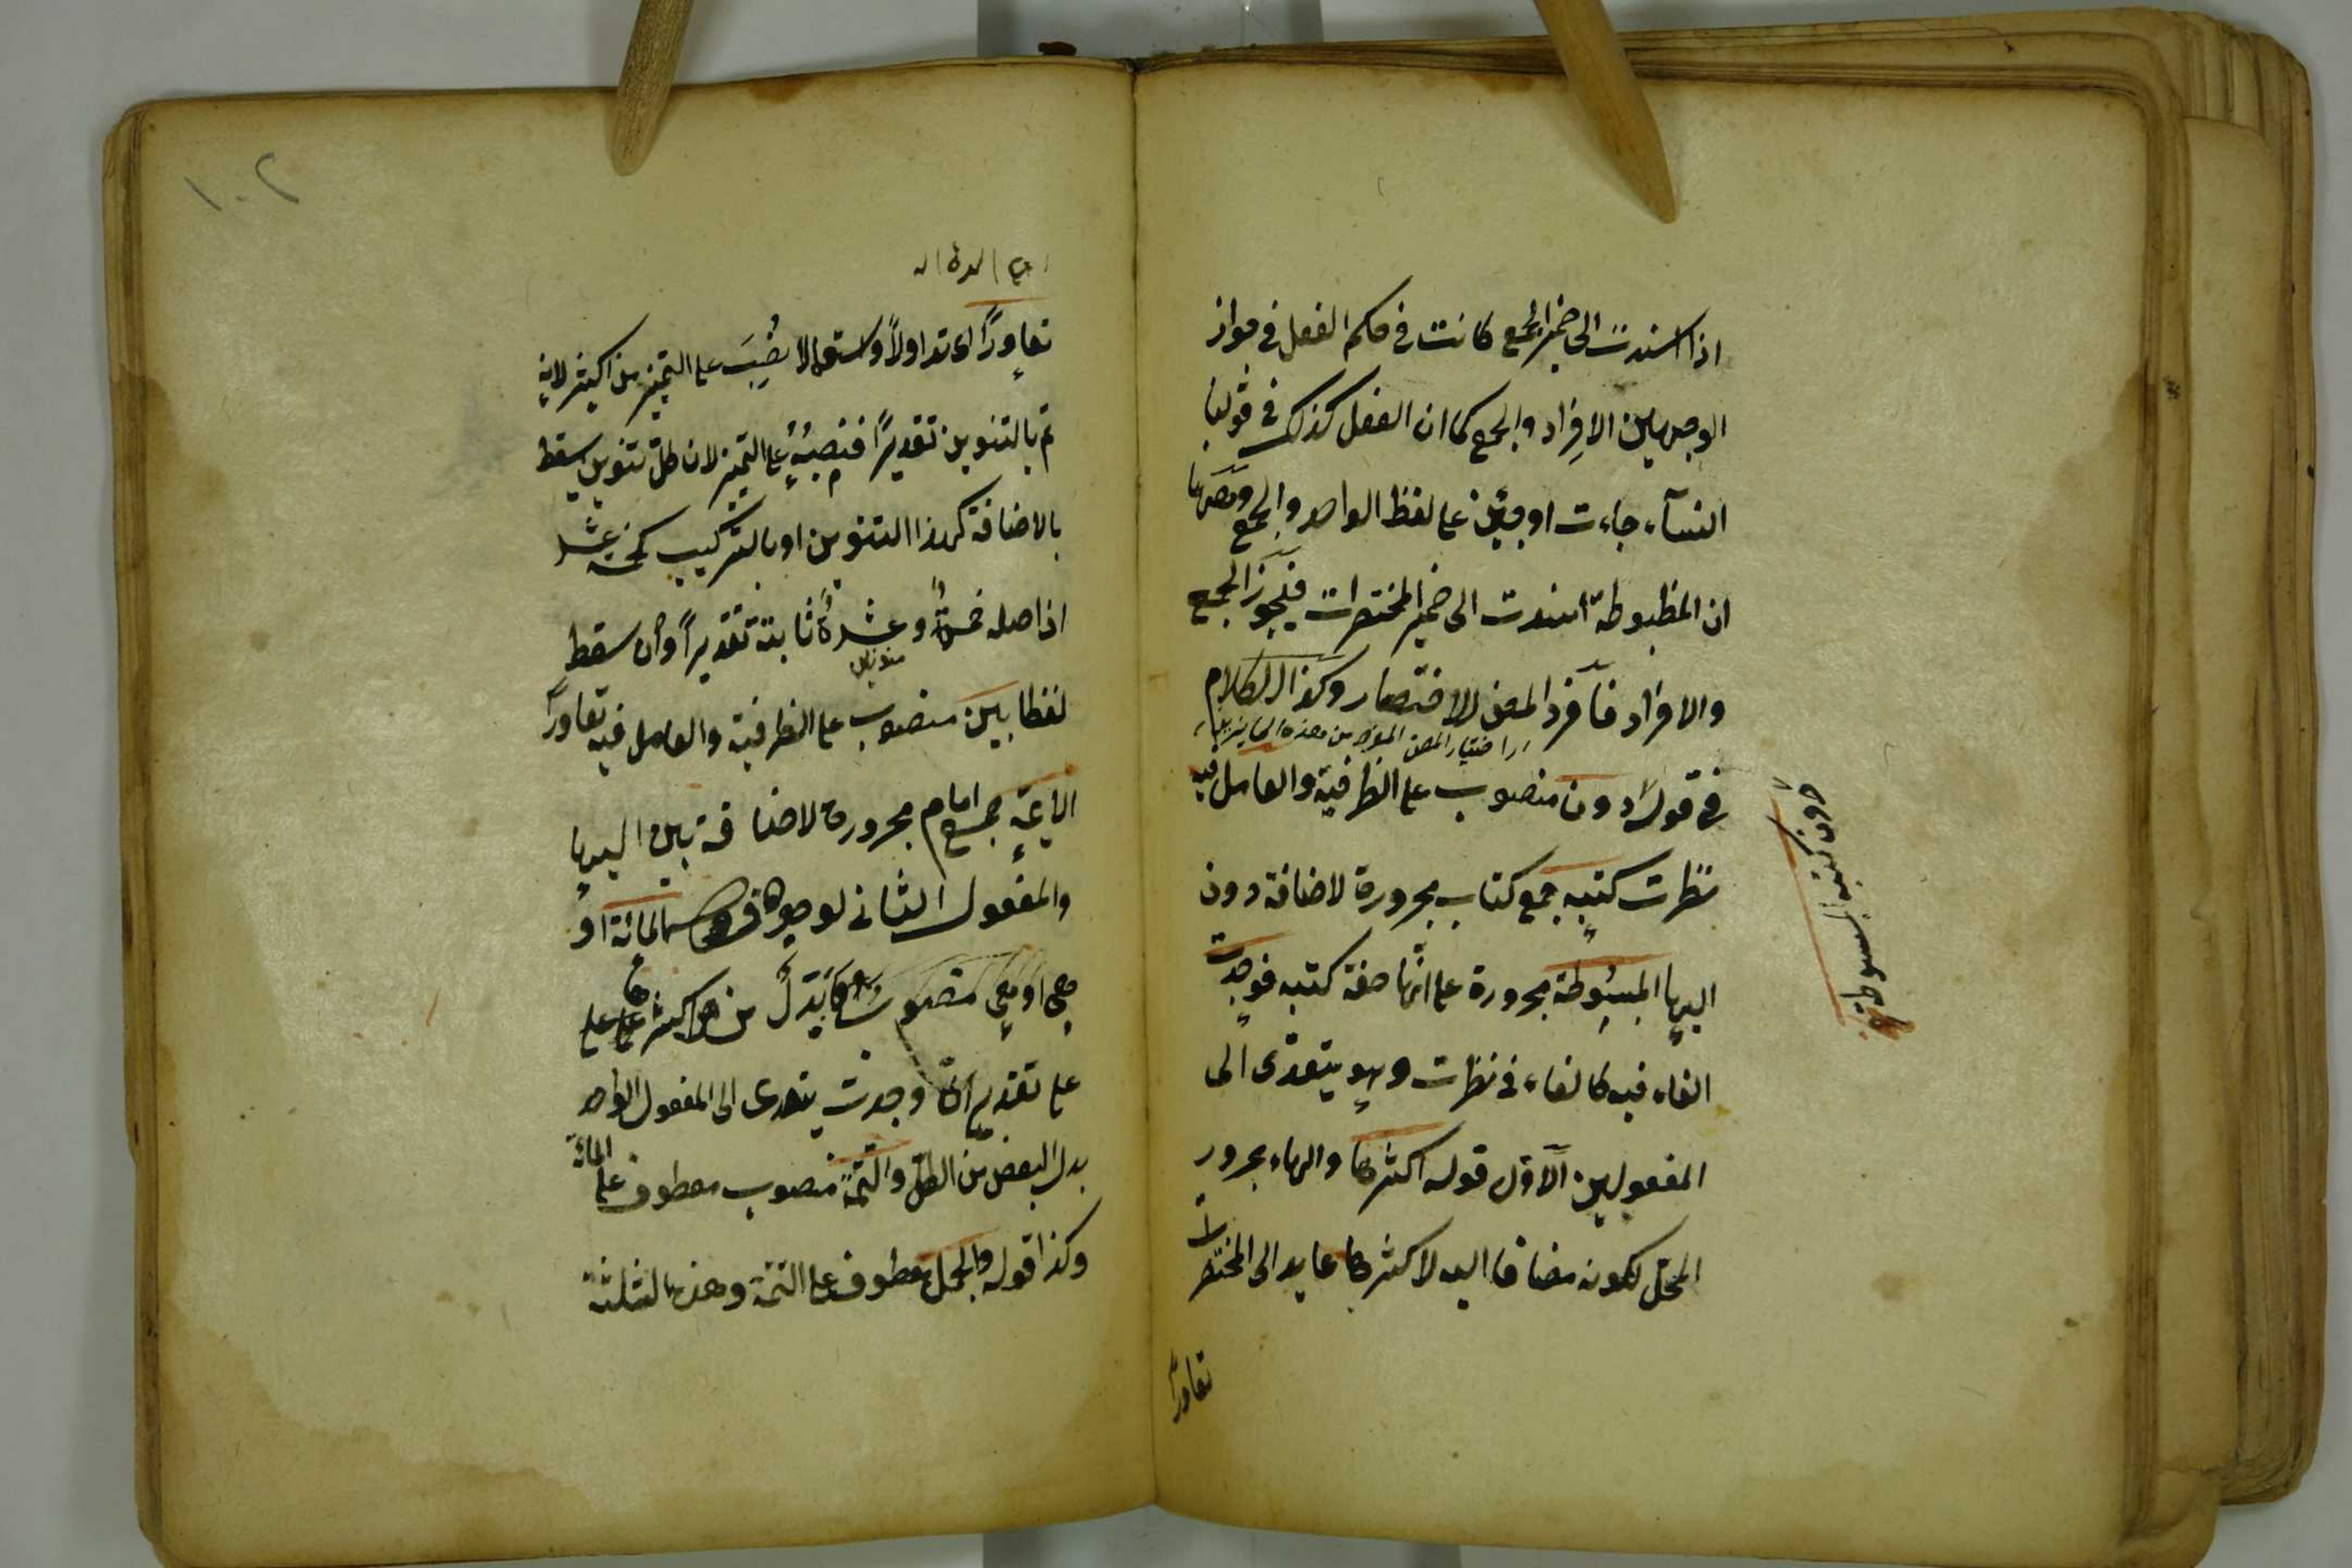 اذا اسندت الى ضمير الجمع كانت فى حكم الفعل فى جواز
الوجهين الافراد والجمع كما ان الفعل كذلك فى قولنا
النسآء جاءت او جئن على لفظ الواحد والجمع
ان المظبوطة اسندت الى ضمير المختصرات فيجوز الجمع
والافراد فآفرد المص للاختصار وكذا الكلام
اختيار المص المؤخر من هذه
فى قوله دون منصوب على الظرفية والعامل فيه
نظرت كتبه جمع كتاب مجرورة لاضافة دون
اليها المبسوطة مجرورة على انها صفة كتبه فوجدت
الفاء فيه كالفاء فى نظرت وهو يتعدى الى
المفعولين الآول قوله اكثرها والهاء مجرور
المحل لكونه مضافا اليه لاكثرها عايد الى المختصرات
تعاورا
دون كتبه المبسوطة
١٠٢
تعاورًا اى تداولاً واستعمالا نُصِبَ على التميز من اكثر لانه
تم بالتنوين تقديرًا فنصبه على التميز لان كل تنوين سقط
بالاضافة كهذا التنوين او بالتركيب كخمسة عشر
اذ اصله خمسةٌ وعشرةٌ ثابتة تقديرًا وان سقط
منونين
لفظا بين منصوب على الظرفية والعامل فيه تعاورًا
الايمّة جمع امام مجرورة لاضافة بين اليها
والمفعول الثانى لوجوه المائة او
هى او هى منصوب بدل من اكثرها على
على تقدير ان وجدت يتعدى الى المفعول الواحد
بدل البعض من الكل والتتمّة منصوب معطوف على المائة
وكذا قوله والجمل معطوف على التتمة وهذه الثلثة